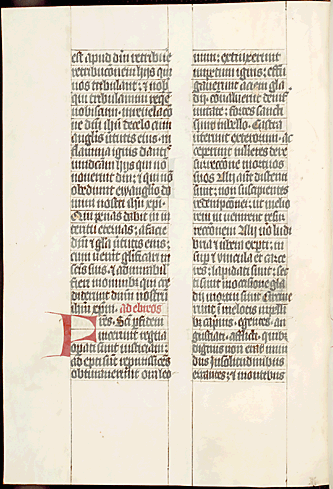 est apud dm̄ retribue
retribucōnem hijs qui
uos tribulant: & uob
qui tribulamini reqē
nobiscum. in reuelacō
ne dm̄ ihu de celo cum
angelis uirtutis eius. in
flamma ignis dantis
uindictam hijs qui nō
nouerunt dm̄. & qui nō
obediunt ewanglio do
mini nostri ihu xpi.
Qui penas dabūt in in
teritu eternas. a facie
dm̄ & gla uirtutis eius.
cum uenit̄ glificari in
scīs suis. & admirabil
fieri in omnibȝ qui cre
diderunt dnm̄ nostrū
ihm̄ xpm̄. ad ebreos
Fres. Sci p fidem
uicerunt regna
opati sunt iusticiam:
adepti sunt repmissiones
obturauerunt ora leo
num: extinxerunt
impetum ignis: effu
gauerunt aciem gla
dij: conualuerunt de infir
mitate: fortes facti
sunt in bello. Castra
uerterunt exterorum: ac
ceperunt mulieres de re
surreccōne mortuos
suos. Alij aūt distenti
sunt: non suscipientes
redempcionem: ut melio
rem inuenirent resur
reccōnem. Alij uo ludi
bria & ubera expti: in
sup & uincula & carce
res: lapidati sunt: sec
ti sunt in occisione gla
dij mortui sunt. Circuie
runt ī melotis ī pelli
bȝ caprinis. egentes. an
gustiati. afflicti. quibȝ
dignus non erat mun
dus. In solitudinibus
errantes: & montibus